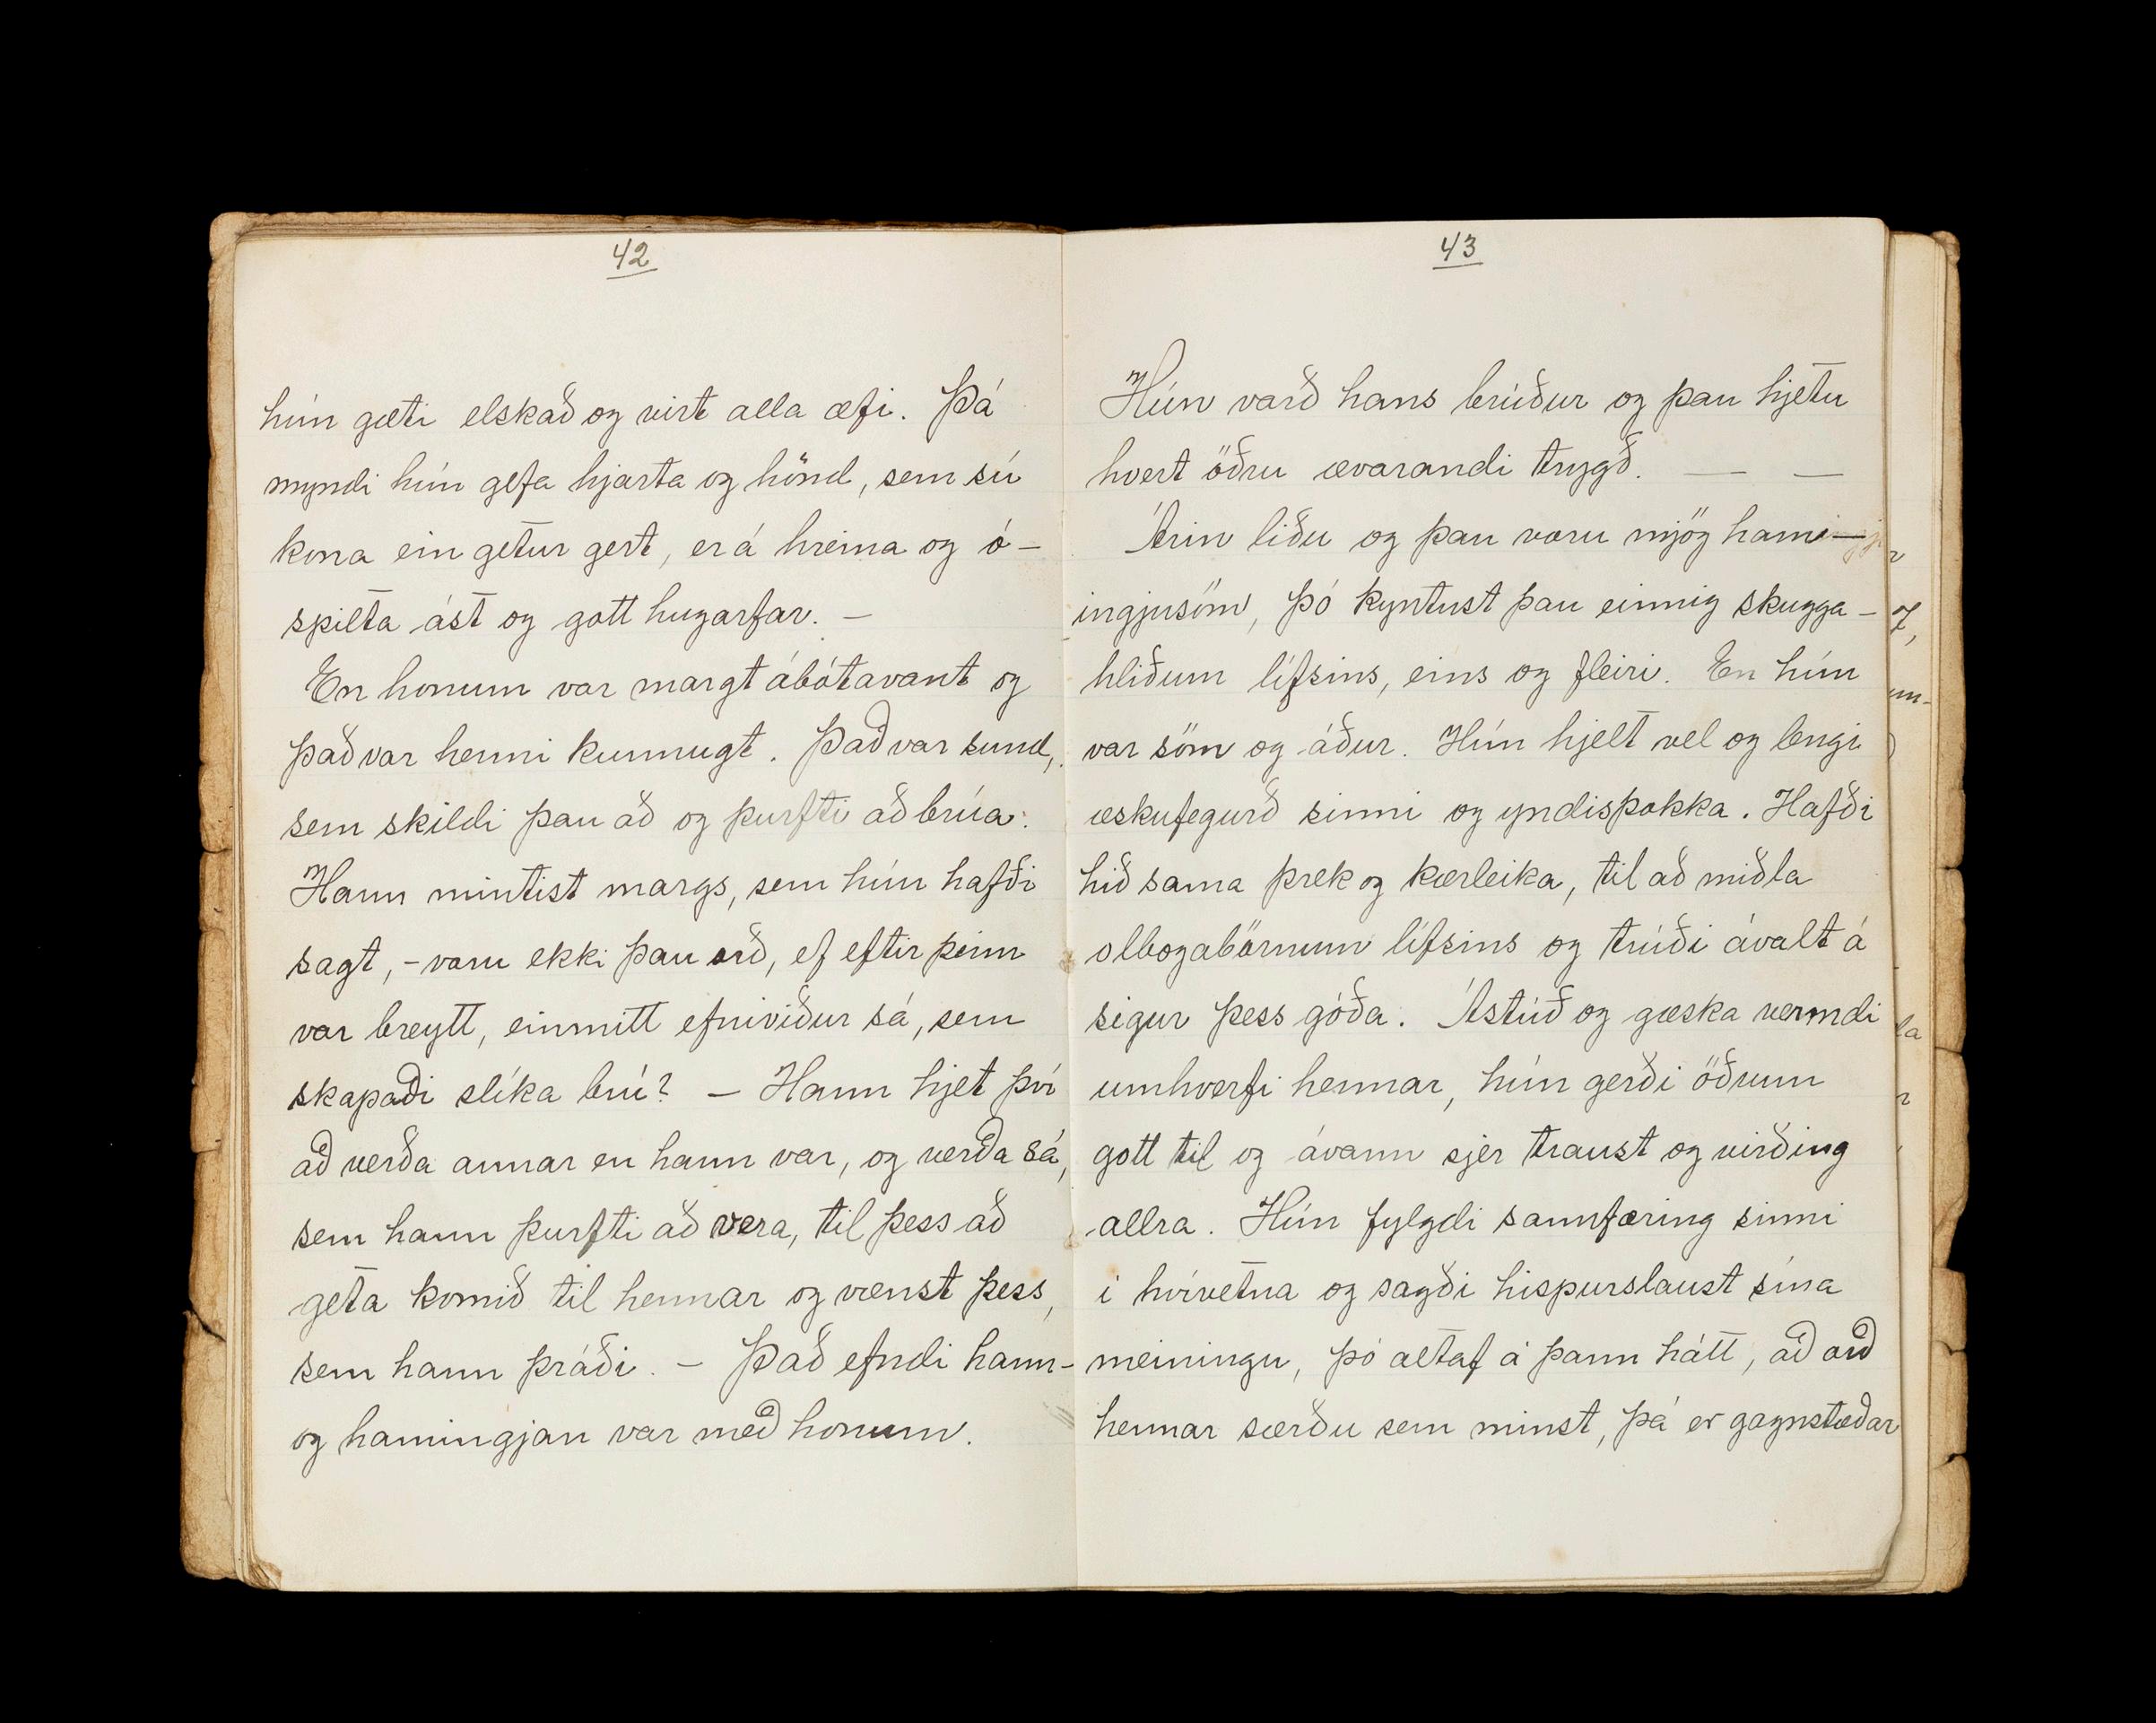 42
hún gæti elskað og virt alla æfi. Þá
myndi hún gefa hjarta og hönd, sem sú
kona ein getur gert, er á hreina og ó-
spilta ást og gott hugarfar. –
En honum var margt ábótavant og
það var henni kunnugt. Það var sund,
sem skildi þau að og þurfti að brúa.
Hann mintist margs, sem hún hafði
sagt, - voru ekki þau orð, ef eftir þeim
var breytt, einmitt efniviður sá, sem
skapaði slíka brú? – Hann hjet því
að verða annar en hann var, og verða sá,
sem hann þurfti að vera, til þess að
geta komið til hennar og vænst þess,
sem hann þráði. – Það efndi hann -
og hamingjan var með honum.
43
Hún varð hans brúður og þau hjetu
hvert öðru ævarandi trygð. — —
Árin liðu og þau voru mjög ham-
ingjusöm, þó kyntust þau einnig skugga-
hliðum lífsins, eins og fleiri. En hún
var söm og áður. Hún hjelt vel og lengi
æskufegurð sinni og yndisþokka. Hafði
hið sama þrek og kærleika, til að miðla
olbogabörnum lífsins og trúði ávalt á
sigur þess góða. Ástúð og gæska vermdi
umhverfi hennar, hún gerði öðrum
gott til og ávann sjer traust og virðing
allra. Hún fylgdi sannfæring sinni
í hvívetna og sagði hispurslaust sína
meiningu, þó altaf á þann hátt, að orð
hennar særðu sem minst, þá er gagnstæðar